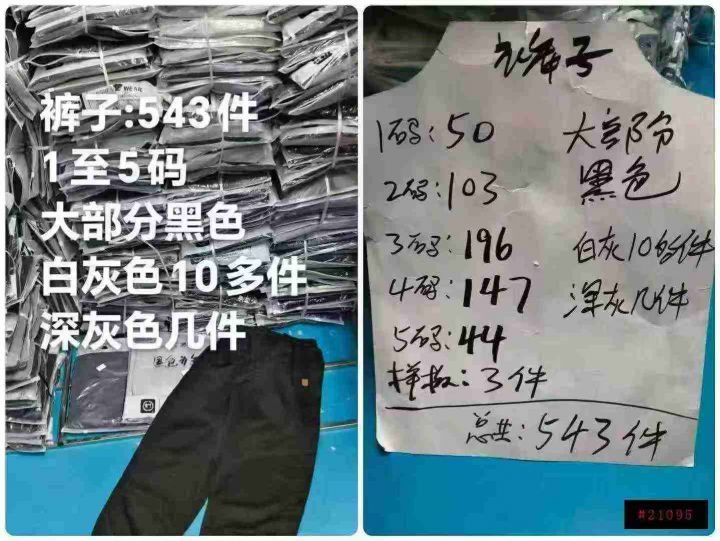 WEAR
裤子:543件
1至5码
大部分黑色
白灰色10多件
深灰色几件
裤子
1码:50 大部分
2码:103 黑色
3码:196 白灰10多件
4码:147 深灰几件
5码:44
样板:3件
总共:543件
#21095